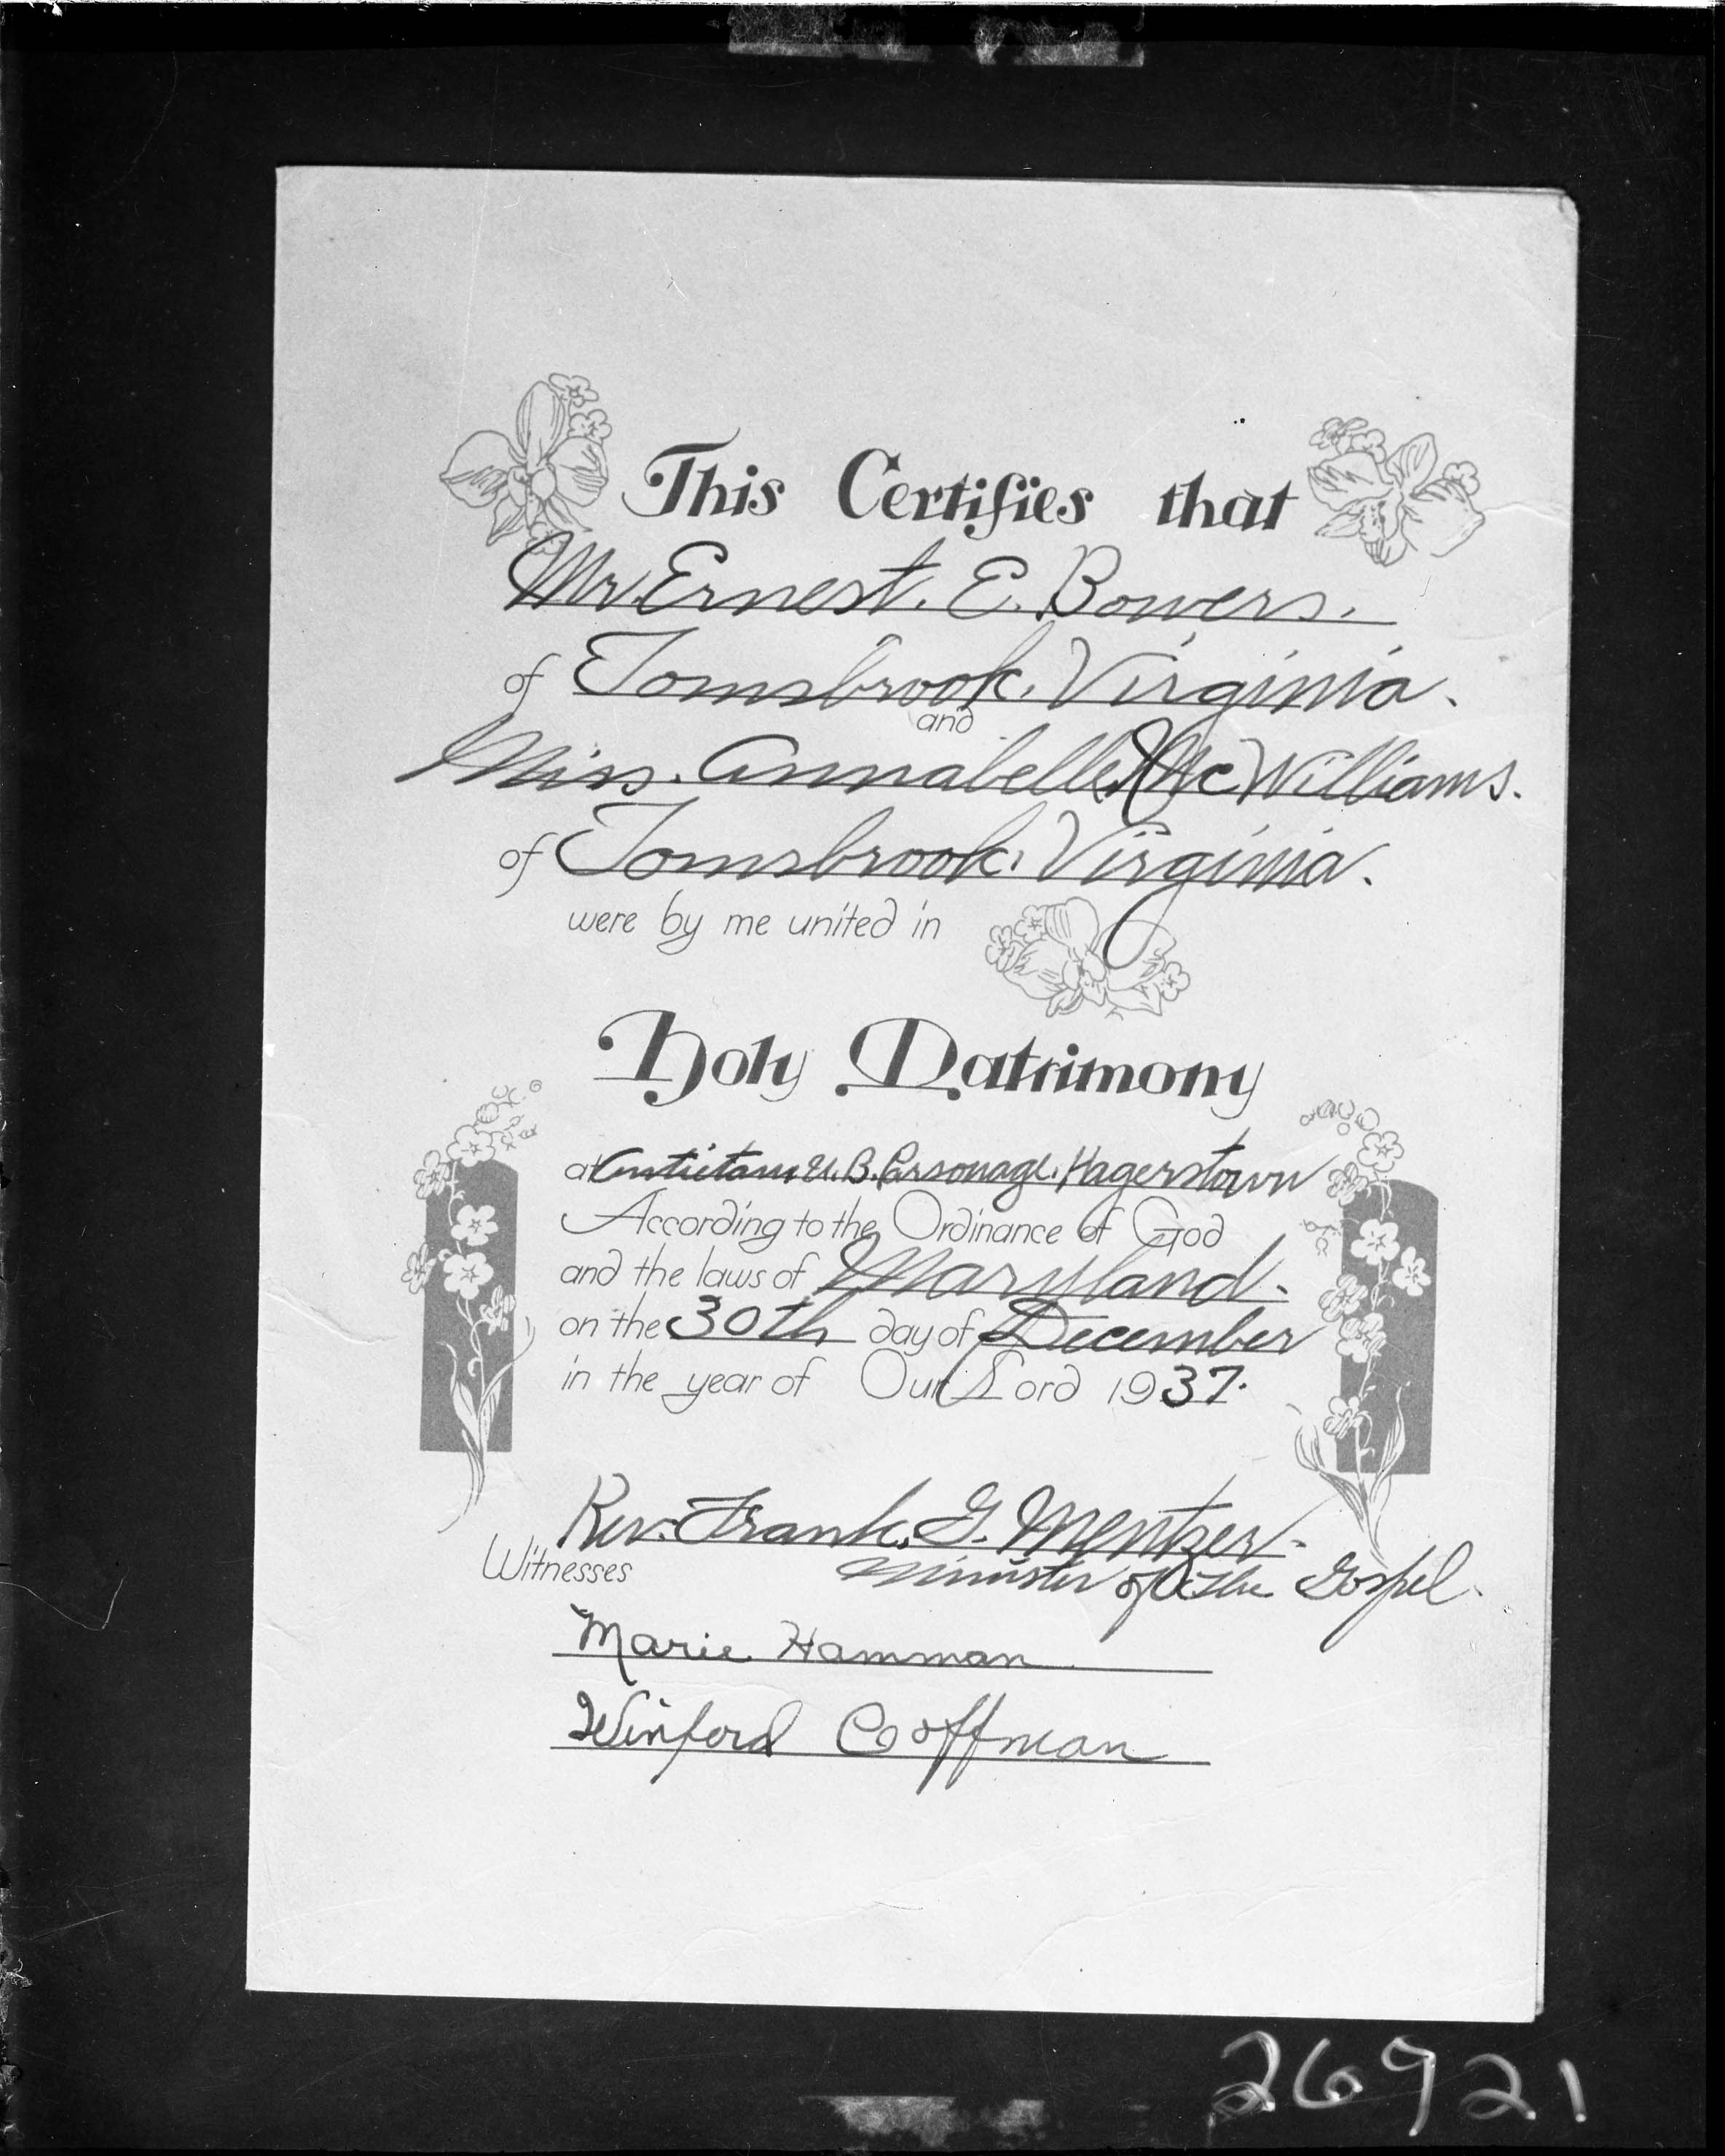 This Certifies that
Mr. Ernest. E. Bowers.
of Tomsbrook. Virginia.
and
Miss. Annabelle McWilliams.
of Tomsbrook. Virginia.
were by me united in
Holy Matrimony
at Antietam U.B. Parsonage. Hagerstown
According to the Ordinance of God
and the laws of Maryland.
on the 30th day of December
in the year of Our Lord 1937.
Rev. Frank. G. Mentzer.
Minister of The Gospel.
Witnesses
Marie Hamman
Winford Coffman
26921